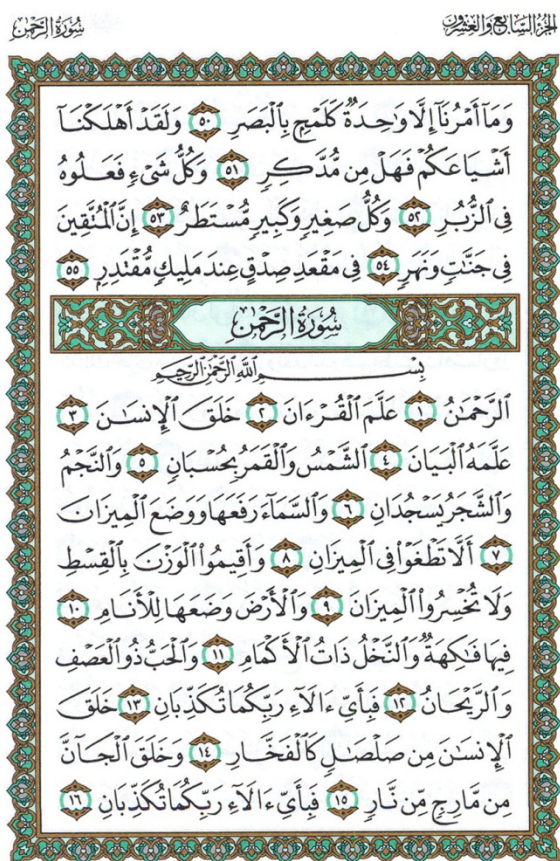 الجزء السابع والعشرون
سُورَةُ الرَّحْمٰن
وَمَآ أَمْرُنَآ إِلَّا وَٰحِدَةٌ كَلَمْحٍۭ بِٱلْبَصَرِ ٥٠ وَلَقَدْ أَهْلَكْنَآ
أَشْيَاعَكُمْ فَهَلْ مِن مُّدَّكِرٍ ٥١ وَكُلُّ شَىْءٍ فَعَلُوهُ
فِى ٱلزُّبُرِ ٥٢ وَكُلُّ صَغِيرٍ وَكَبِيرٍ مُّسْتَطَرٌ ٥٣ إِنَّ ٱلْمُتَّقِينَ
فِى جَنَّٰتٍ وَنَهَرٍ ٥٤ فِى مَقْعَدِ صِدْقٍ عِندَ مَلِيكٍ مُّقْتَدِرٍۭ ٥٥
سُورَةُ الرَّحْمٰن
بِسْمِ ٱللَّهِ ٱلرَّحْمَٰنِ ٱلرَّحِيمِ
ٱلرَّحْمَٰنُ ١ عَلَّمَ ٱلْقُرْءَانَ ٢ خَلَقَ ٱلْإِنسَٰنَ ٣
عَلَّمَهُ ٱلْبَيَانَ ٤ ٱلشَّمْسُ وَٱلْقَمَرُ بِحُسْبَانٍ ٥ وَٱلنَّجْمُ
وَٱلشَّجَرُ يَسْجُدَانِ ٦ وَٱلسَّمَآءَ رَفَعَهَا وَوَضَعَ ٱلْمِيزَانَ
٧ أَلَّا تَطْغَوْا۟ فِى ٱلْمِيزَانِ ٨ وَأَقِيمُوا۟ ٱلْوَزْنَ بِٱلْقِسْطِ
وَلَا تُخْسِرُوا۟ ٱلْمِيزَانَ ٩ وَٱلْأَرْضَ وَضَعَهَا لِلْأَنَامِ ١٠
فِيهَا فَٰكِهَةٌ وَٱلنَّخْلُ ذَاتُ ٱلْأَكْمَامِ ١١ وَٱلْحَبُّ ذُو ٱلْعَصْفِ
وَٱلرَّيْحَانُ ١٢ فَبِأَىِّ ءَالَآءِ رَبِّكُمَا تُكَذِّبَانِ ١٣ خَلَقَ
ٱلْإِنسَٰنَ مِن صَلْصَٰلٍ كَٱلْفَخَّارِ ١٤ وَخَلَقَ ٱلْجَآنَّ
مِن مَّارِجٍ مِّن نَّارٍ ١٥ فَبِأَىِّ ءَالَآءِ رَبِّكُمَا تُكَذِّبَانِ ١٦